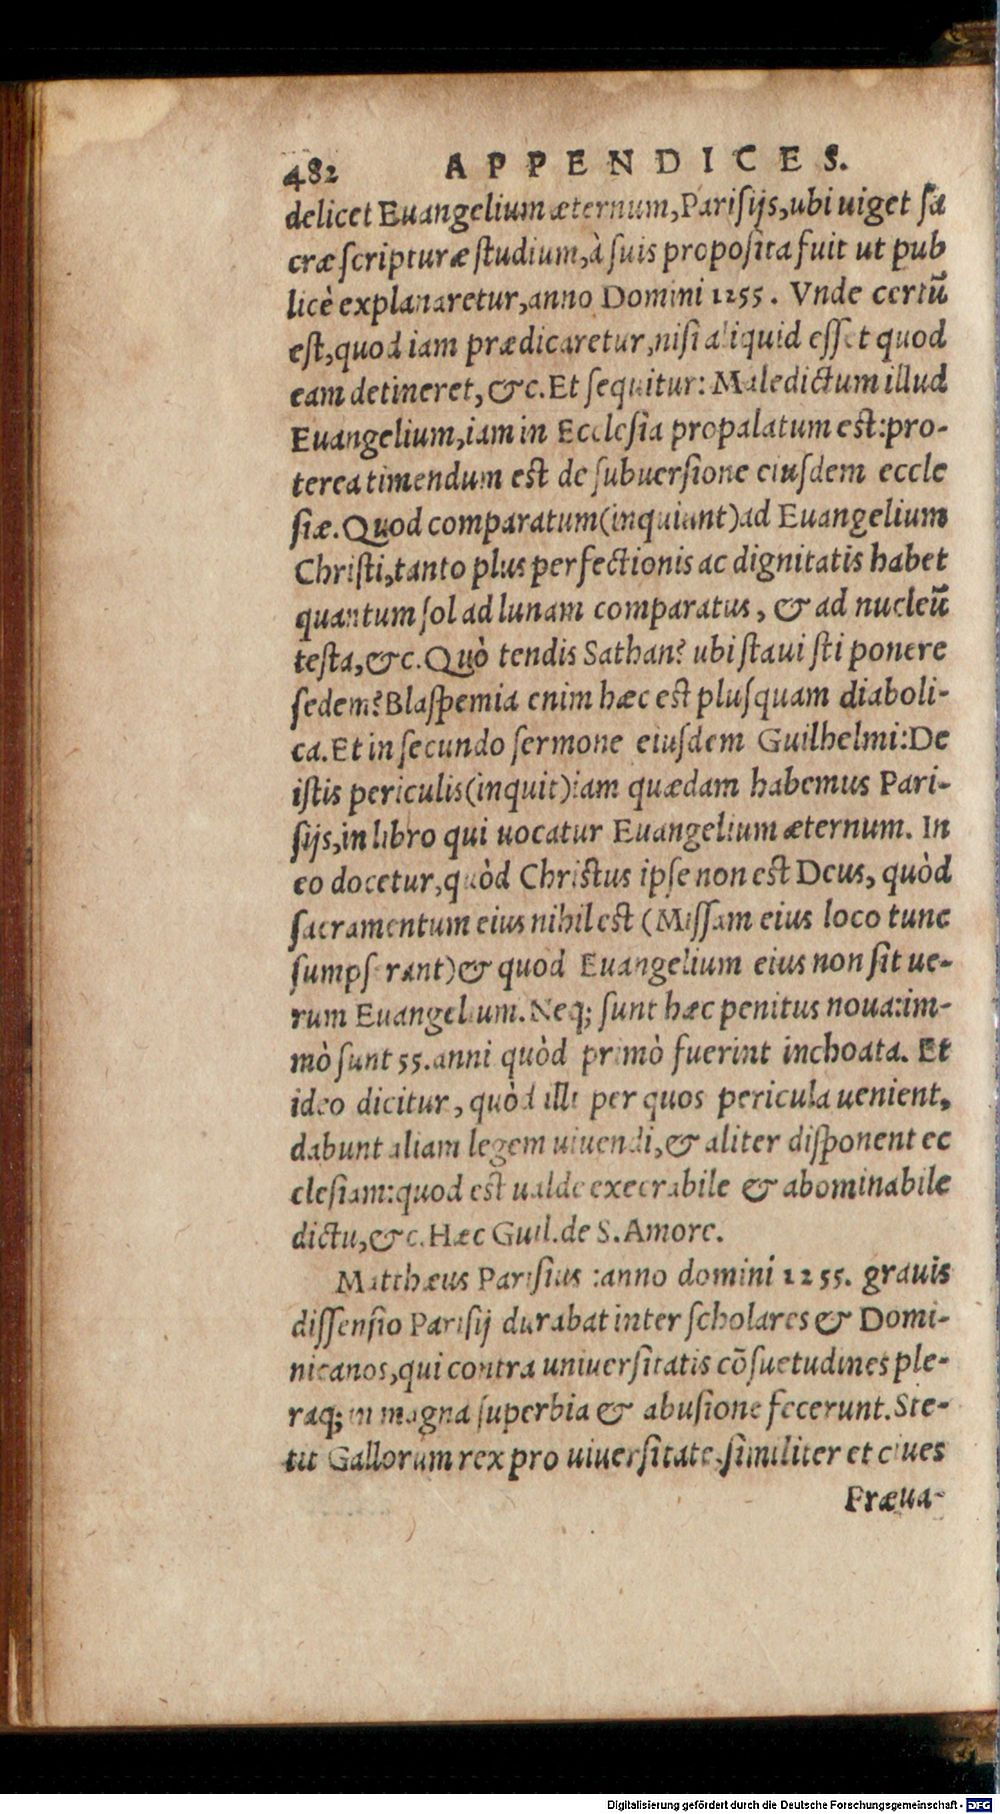 482 APPENDICES.
delicet Euangelium æternum, Parisijs, ubi uiget sa
cræ scripturæ studium, à suis proposita fuit ut pub
licè explanaretur, anno Domini 1255. Vnde certū
est, quod iam prædicaretur, nisi aliquid esset quod
eam detineret, &c. Et sequitur: Maledictum illud
Euangelium, iam in Ecclesia propalatum est: pro-
terea timendum est de subuersione eiusdem eccle
siæ. Quod comparatum (inquiunt) ad Euangelium
Christi, tanto plus perfectionis ac dignitatis habet
quantum sol ad lunam comparatus, & ad nucleū
testa, &c. Quò tendis Sathan? ubi staui sti ponere
sedem? Blaspemia enim hæc est plusquam diaboli-
ca. Et in secundo sermone eiusdem Guilhelmi: De
istis periculis (inquit) iam quædam habemus Pari-
sijs, in libro qui uocatur Euangelium æternum. In
eo docetur, quòd Christus ipse non est Deus, quòd
sacramentum eius nihil est (Missam eius loco tunc
sumpserant) & quod Euangelium eius non sit ue-
rum Euangelium. Neq; sunt hæc penitus noua: im-
mò sunt 55. anni quòd primò fuerint inchoata. Et
ideo dicitur, quòd illi per quos pericula uenient,
dabunt aliam legem uiuendi, & aliter disponent ec
clesiam: quod est ualde execrabile & abominabile
dictu, &c. Hæc Guil. de S. Amore.
Matthæus Parisius: anno domini 1255. grauis
dissensio Parisij durabat inter scholares & Domi-
nicanos, qui contra uniuersitatis cōsuetudines ple-
raq; in magna superbia & abusione fecerunt. Ste-
tit Gallorum rex pro uiuersitate, similiter et ciues
Præua-
Digitalisierung gefördert durch die Deutsche Forschungsgemeinschaft - DFG